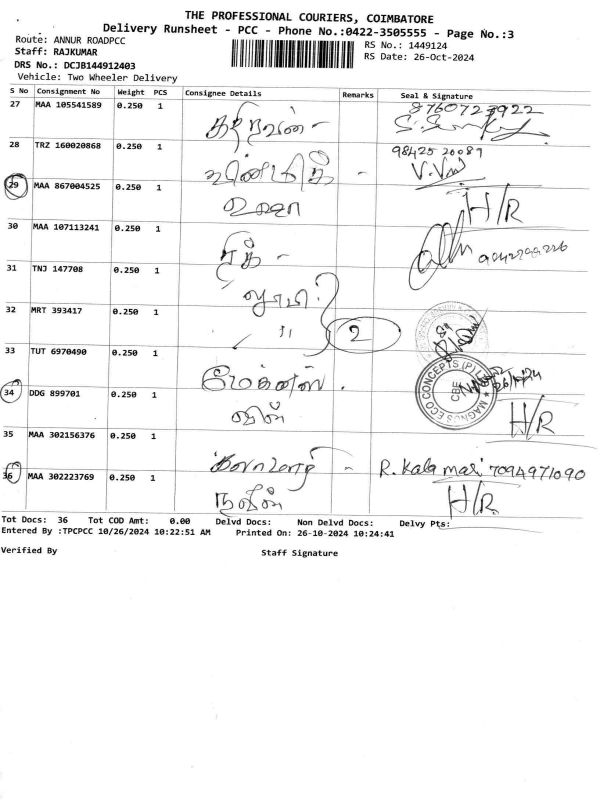 THE PROFESSIONAL COURIERS, COIMBATORE
Delivery Runsheet - PCC - Phone No.:0422-3505555 - Page No.:3
Route: ANNUR ROADPCC
RS No.: 1449124
Staff: RAJKUMAR
RS Date: 26-Oct-2024
DRS No.: DCJB144912403
Vehicle: Two Wheeler Delivery
S No Consignment No Weight PCS Consignee Details Remarks Seal & Signature
27 MAA 105541589 0.250 1 கதிரவன் - 8760723922
28 TRZ 160020868 0.250 1 - 98425 20089
29 MAA 867004525 0.250 1 உஷா H/R
30 MAA 107113241 0.250 1 -
31 TNJ 147708 0.250 1
32 MRT 393417 0.250 1 " 2
33 TUT 6970490 0.250 1 மேக்னஸ்.
MAGNUS ECO CONCEPTS (P) LTD
CBE
34 DDG 899701 0.250 1 H/R
35 MAA 302156376 0.250 1 கலாமாரி - R. Kala mari 7094971090
36 MAA 302223769 0.250 1 H/R
Tot Docs: 36 Tot COD Amt: 0.00 Delvd Docs: Non Delvd Docs: Delvy Pts:
Entered By :TPCPCC 10/26/2024 10:22:51 AM Printed On: 26-10-2024 10:24:41
Verified By Staff Signature